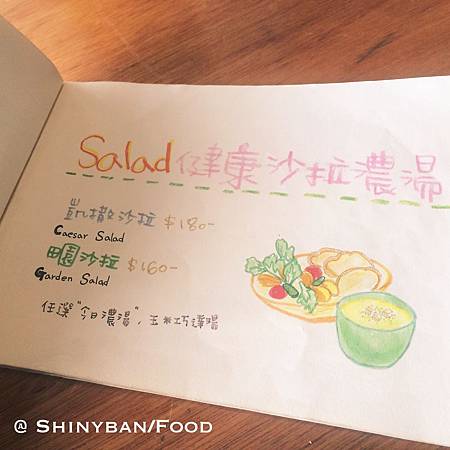 Salad健康沙拉濃湯
凱撒沙拉 $180-
Caesar Salad
田園沙拉 $160-
Garden Salad
任選"今日濃湯"，玉米巧達湯
@ SHINYBAN/FOOD